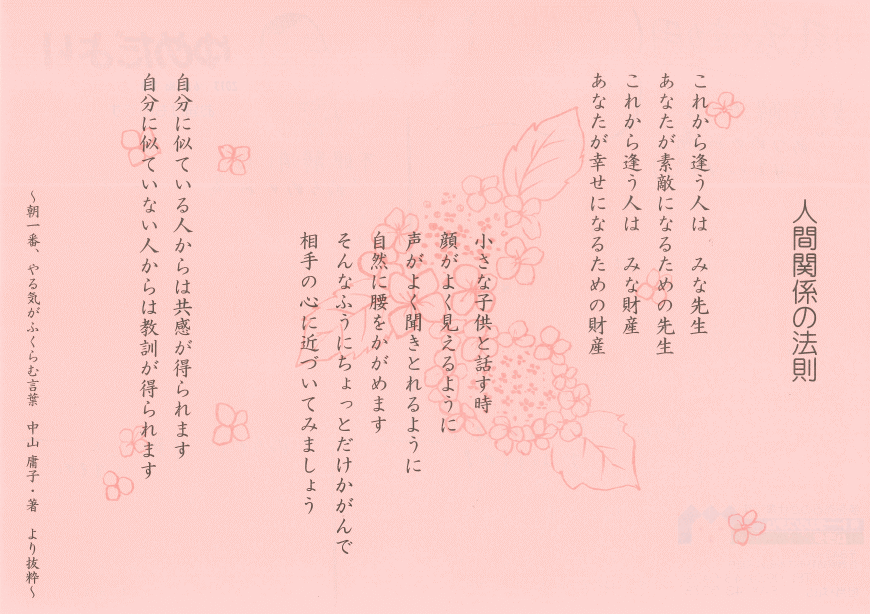 人間関係の法則
これから逢う人は　みな先生
あなたが素敵になるための先生
これから逢う人は　みな財産
あなたが幸せになるための財産
小さな子供と話す時
顔がよく見えるように
声がよく聞きとれるように
自然に腰をかがめます
そんなふうにちょっとだけかがんで
相手の心に近づいてみましょう
自分に似ている人からは共感が得られます
自分に似ていない人からは教訓が得られます
～朝一番、やる気がふくらむ言葉　中山 庸子・著　より抜粋～